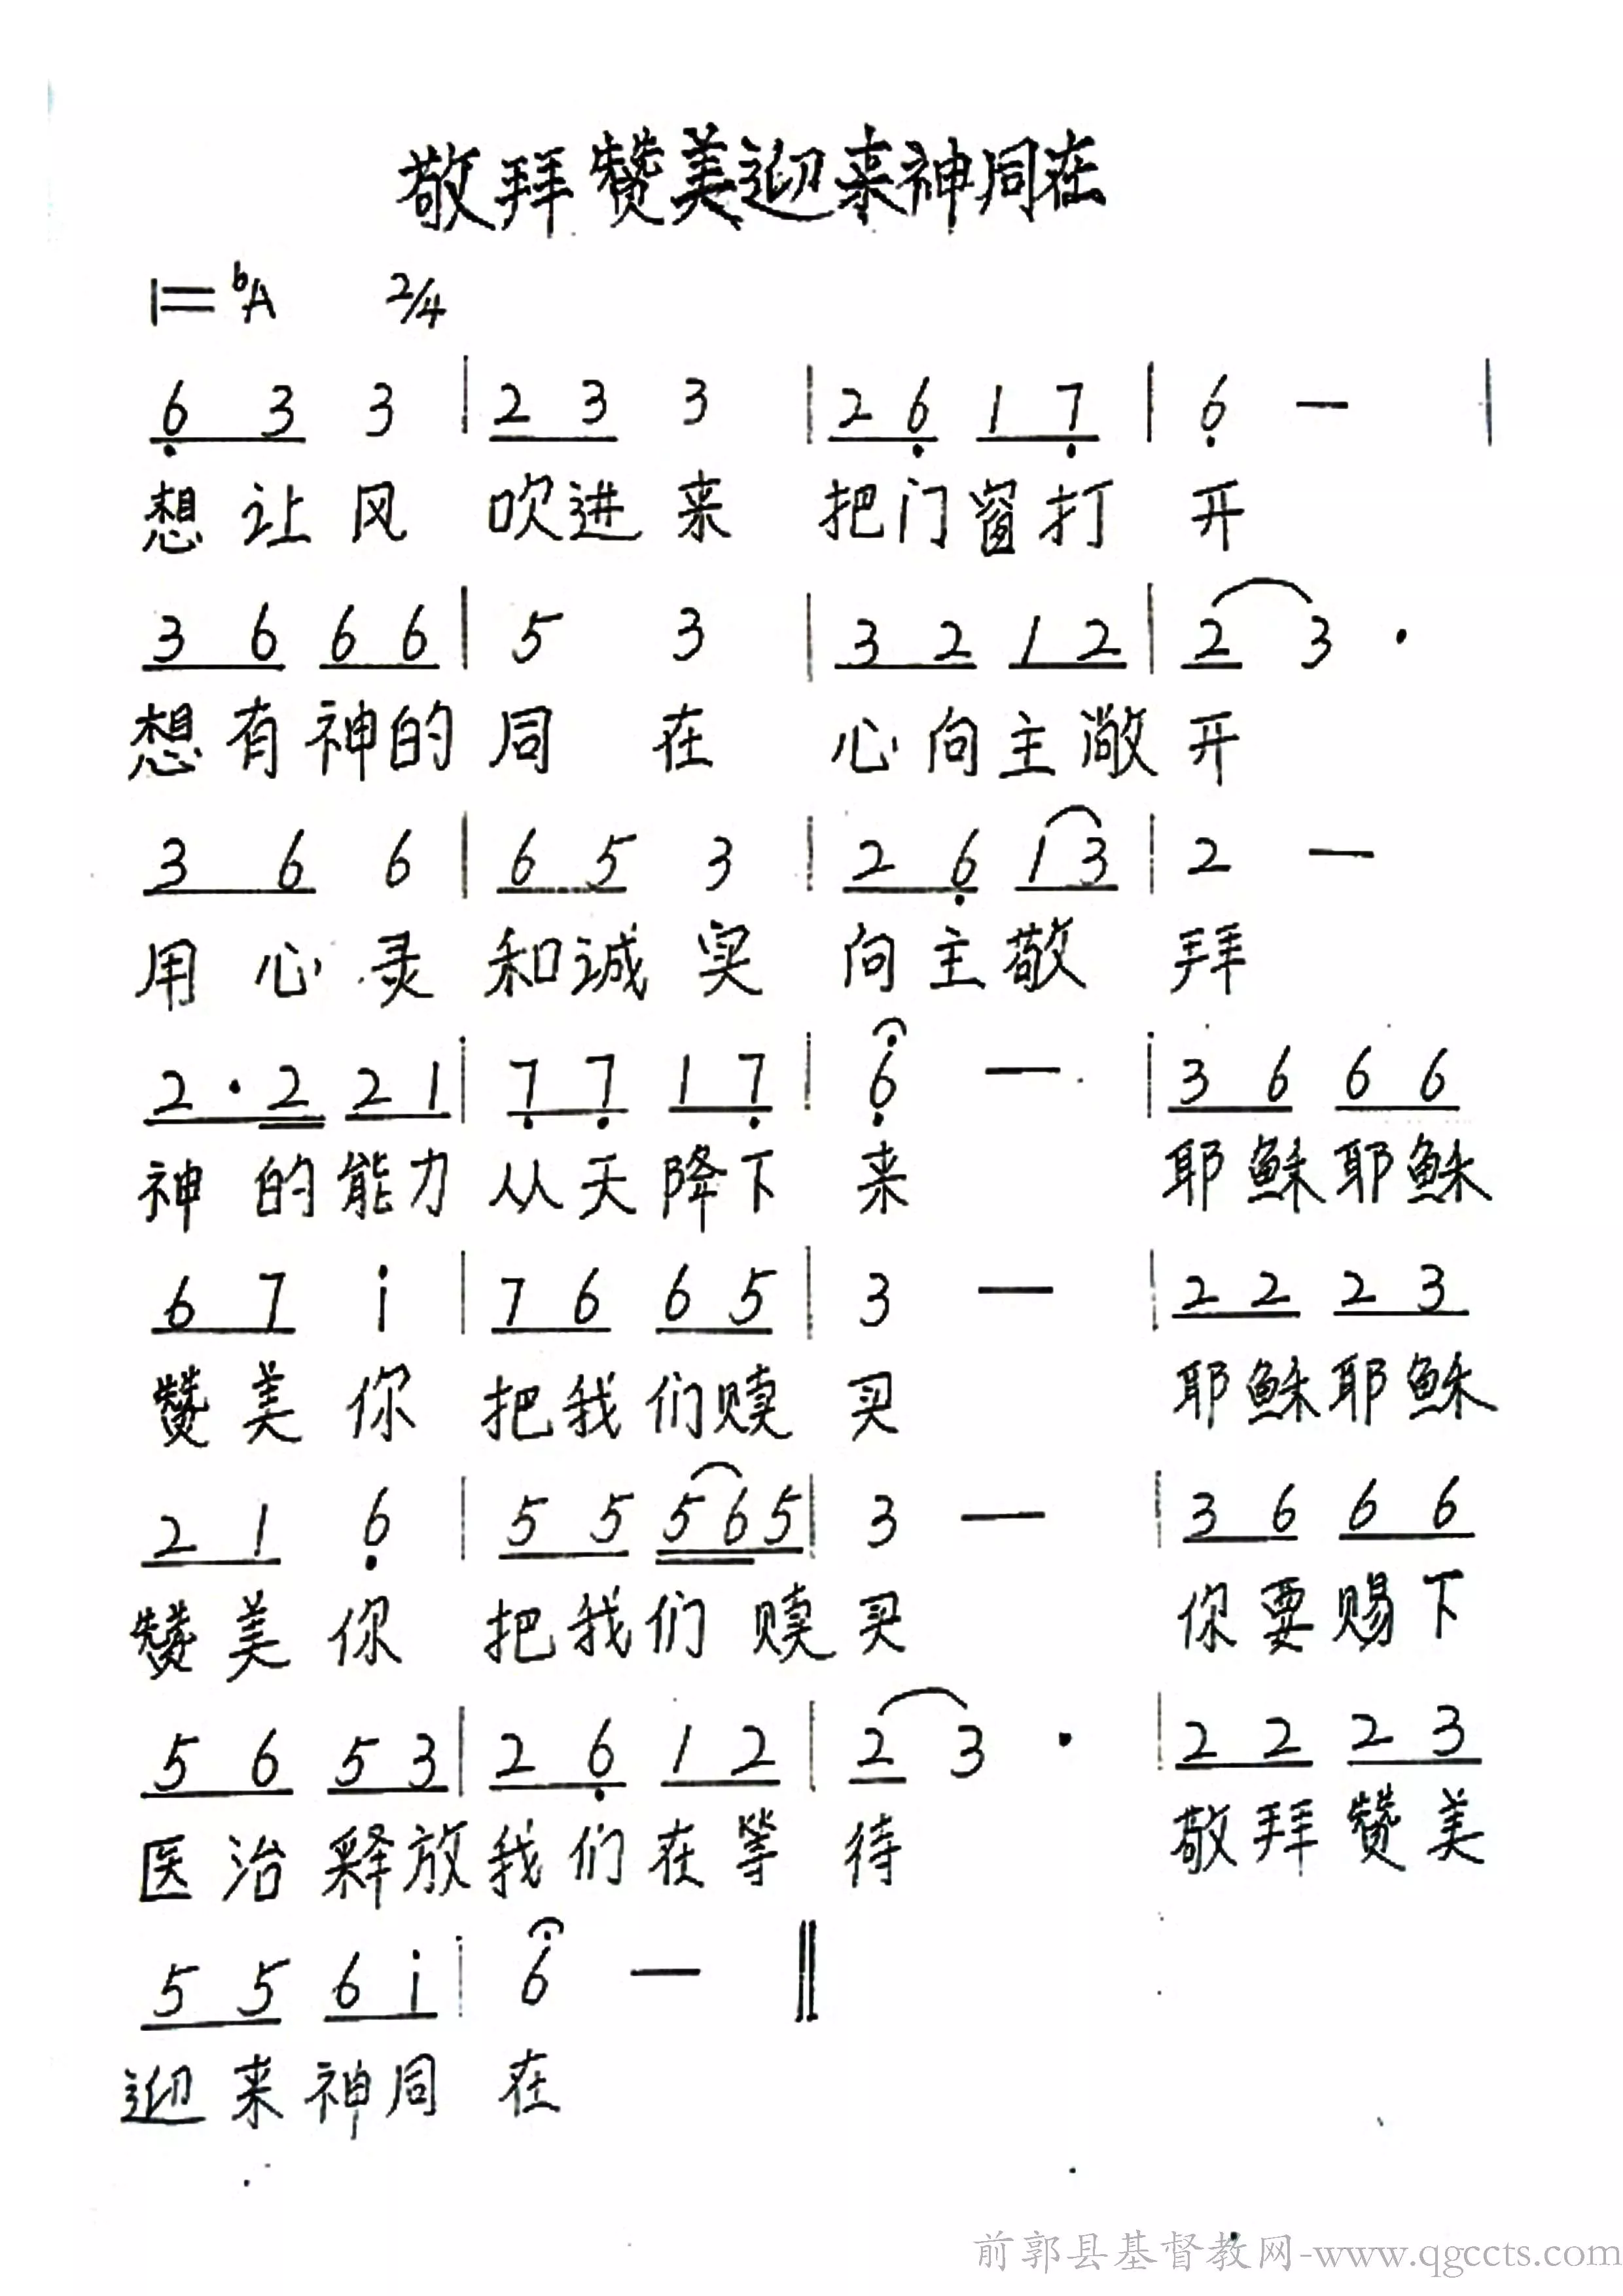 敬拜赞美迎来神同在
1=ᵇA 2/4
6̣ 3 3 | 2 3 3 | 2 6̣ 1 7̣ | 6̣ — |
想让风 吹进来 把门窗打开
3 6 6 6 | 5 3 | 3 2 1 2 | 2 3 ·
想有神的同在 心向主敞开
3 6 6 | 6 5 3 | 2 6̣ 1 3 | 2 —
用心灵 和诚实 向主敬拜
2 · 2 2 1 | 7̣ 7̣ 1 7̣ | 6̣ — | 3 6 6 6
神的能力 从天降下来 耶稣耶稣
6 7 i | 7 6 6 5 | 3 — | 2 2 2 3
赞美你 把我们赎买 耶稣耶稣
2 1 6̣ | 5 5 5 6 5 | 3 — | 3 6 6 6
赞美你 把我们赎买 你要赐下
5 6 5 3 | 2 6̣ 1 2 | 2 3 · | 2 2 2 3
医治释放我们在等待 敬拜赞美
5 5 6 i | 6 — ‖
迎来神同在
前郭县基督教网-www.qgccts.com